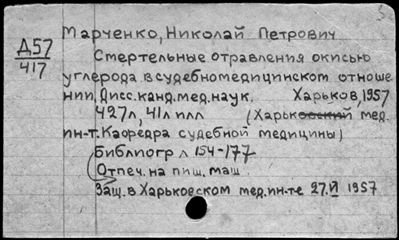 Марченко, Николай Петрович
Д57
417
Смертельные отравления окисью
углерода в судебномедицинском отноше
нии, Дисс. канд. мед. наук, Харьков, 1957
427л, 41л илл (Харьковский мед.
ин-т. Кафедра судебной медицины)
Библиогр л 154-177
Отпеч. на пиш. маш.
Защ. в Харьковском мед. ин-те 27.VI 1957